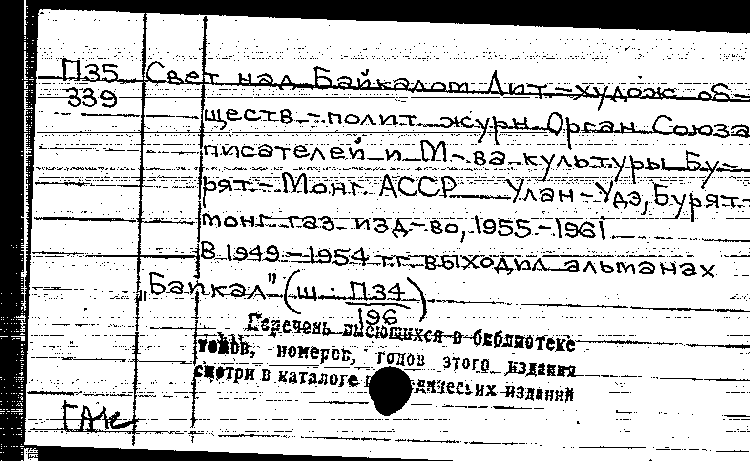 П35 Свет над Байкалом Лит.-худож. об-
339
ществ.-полит. журн. Орган Союза
писателей и М-ва культуры Бу-
рят.-Монг. АССР Улан-Удэ, Бурят.-
монг. газ. изд-во, 1955-1961
В 1949-1954 г.г. выходил альманах
"Байкал" (ш. П34
196)
Перечень имеющихся в библиотеке
томов, номеров, годов этого издания
смотри в каталоге изданий